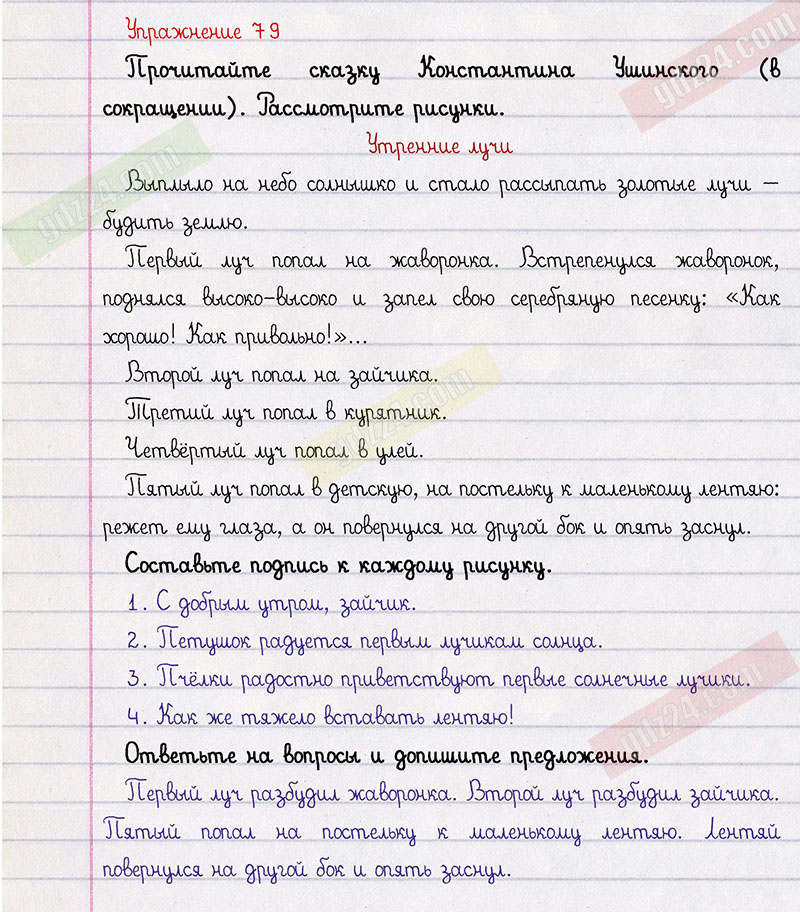 Упражнение 79
Прочитайте сказку Константина Ушинского (в
сокращении). Рассмотрите рисунки.
Утренние лучи
Выплыло на небо солнышко и стало рассыпать золотые лучи –
будить землю.
Первый луч попал на жаворонка. Встрепенулся жаворонок,
поднялся высоко-высоко и запел свою серебряную песенку: «Как
хорошо! Как привольно!»...
Второй луч попал на зайчика.
Третий луч попал в курятник.
Четвёртый луч попал в улей.
Пятый луч попал в детскую, на постельку к маленькому лентяю:
режет ему глаза, а он повернулся на другой бок и опять заснул.
Составьте подпись к каждому рисунку.
1. С добрым утром, зайчик.
2. Петушок радуется первым лучикам солнца.
3. Пчёлки радостно приветствуют первые солнечные лучики.
4. Как же тяжело вставать лентяю!
Ответьте на вопросы и допишите предложения.
Первый луч разбудил жаворонка. Второй луч разбудил зайчика.
Пятый попал на постельку к маленькому лентяю. Лентяй
повернулся на другой бок и опять заснул.
gdz24.com
gdz24.com
gdz24.com
gdz24.com